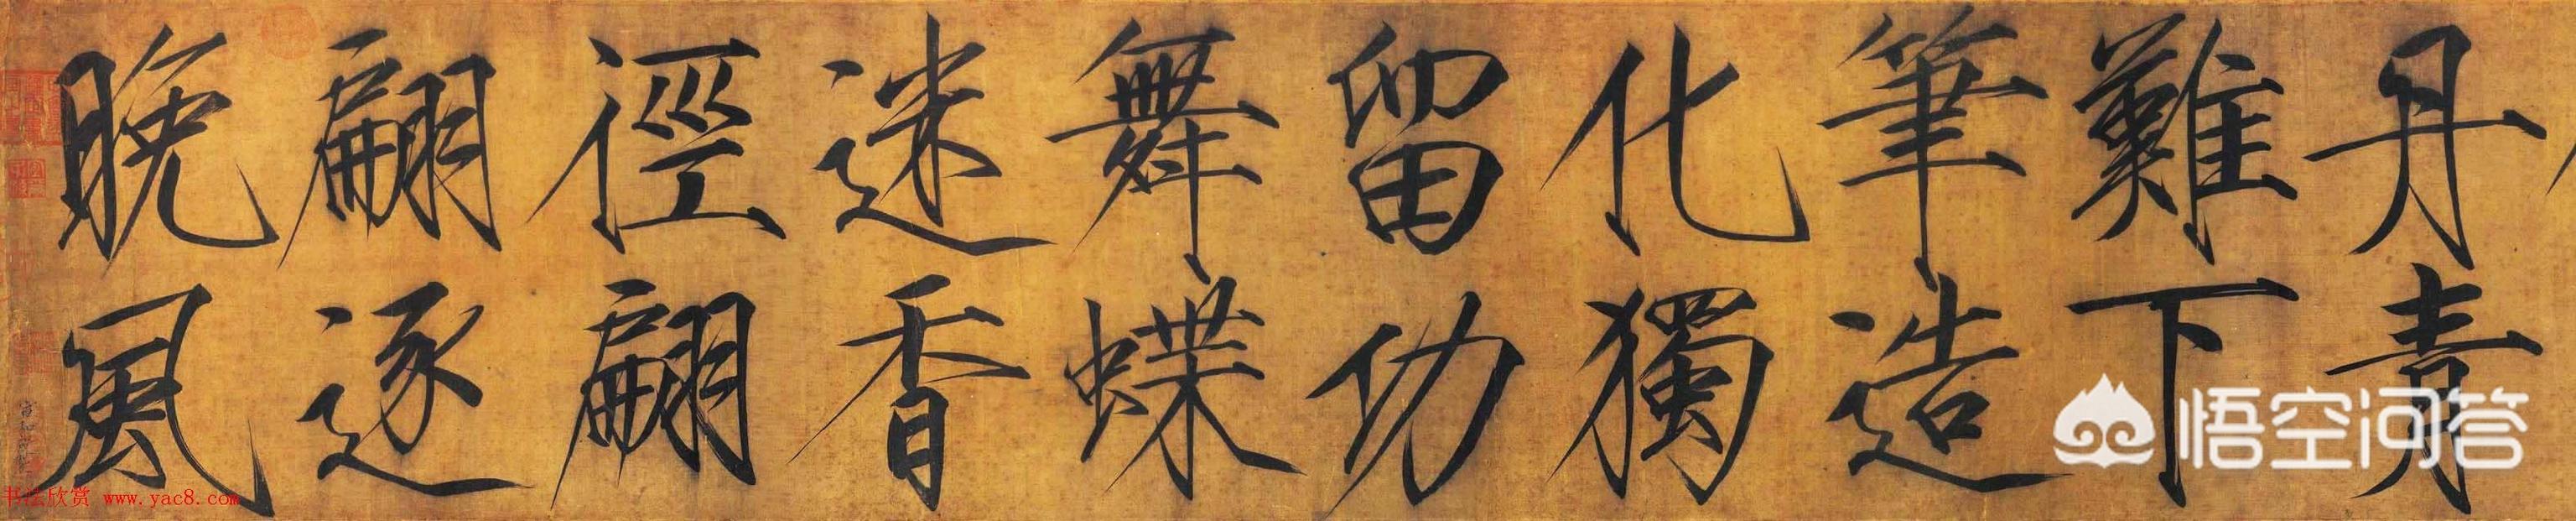 丹青
難下
筆造
化獨
留功
舞蝶
迷香
徑翩
翩逐
晚風
悟空问答
书法欣赏 www.yac8.com